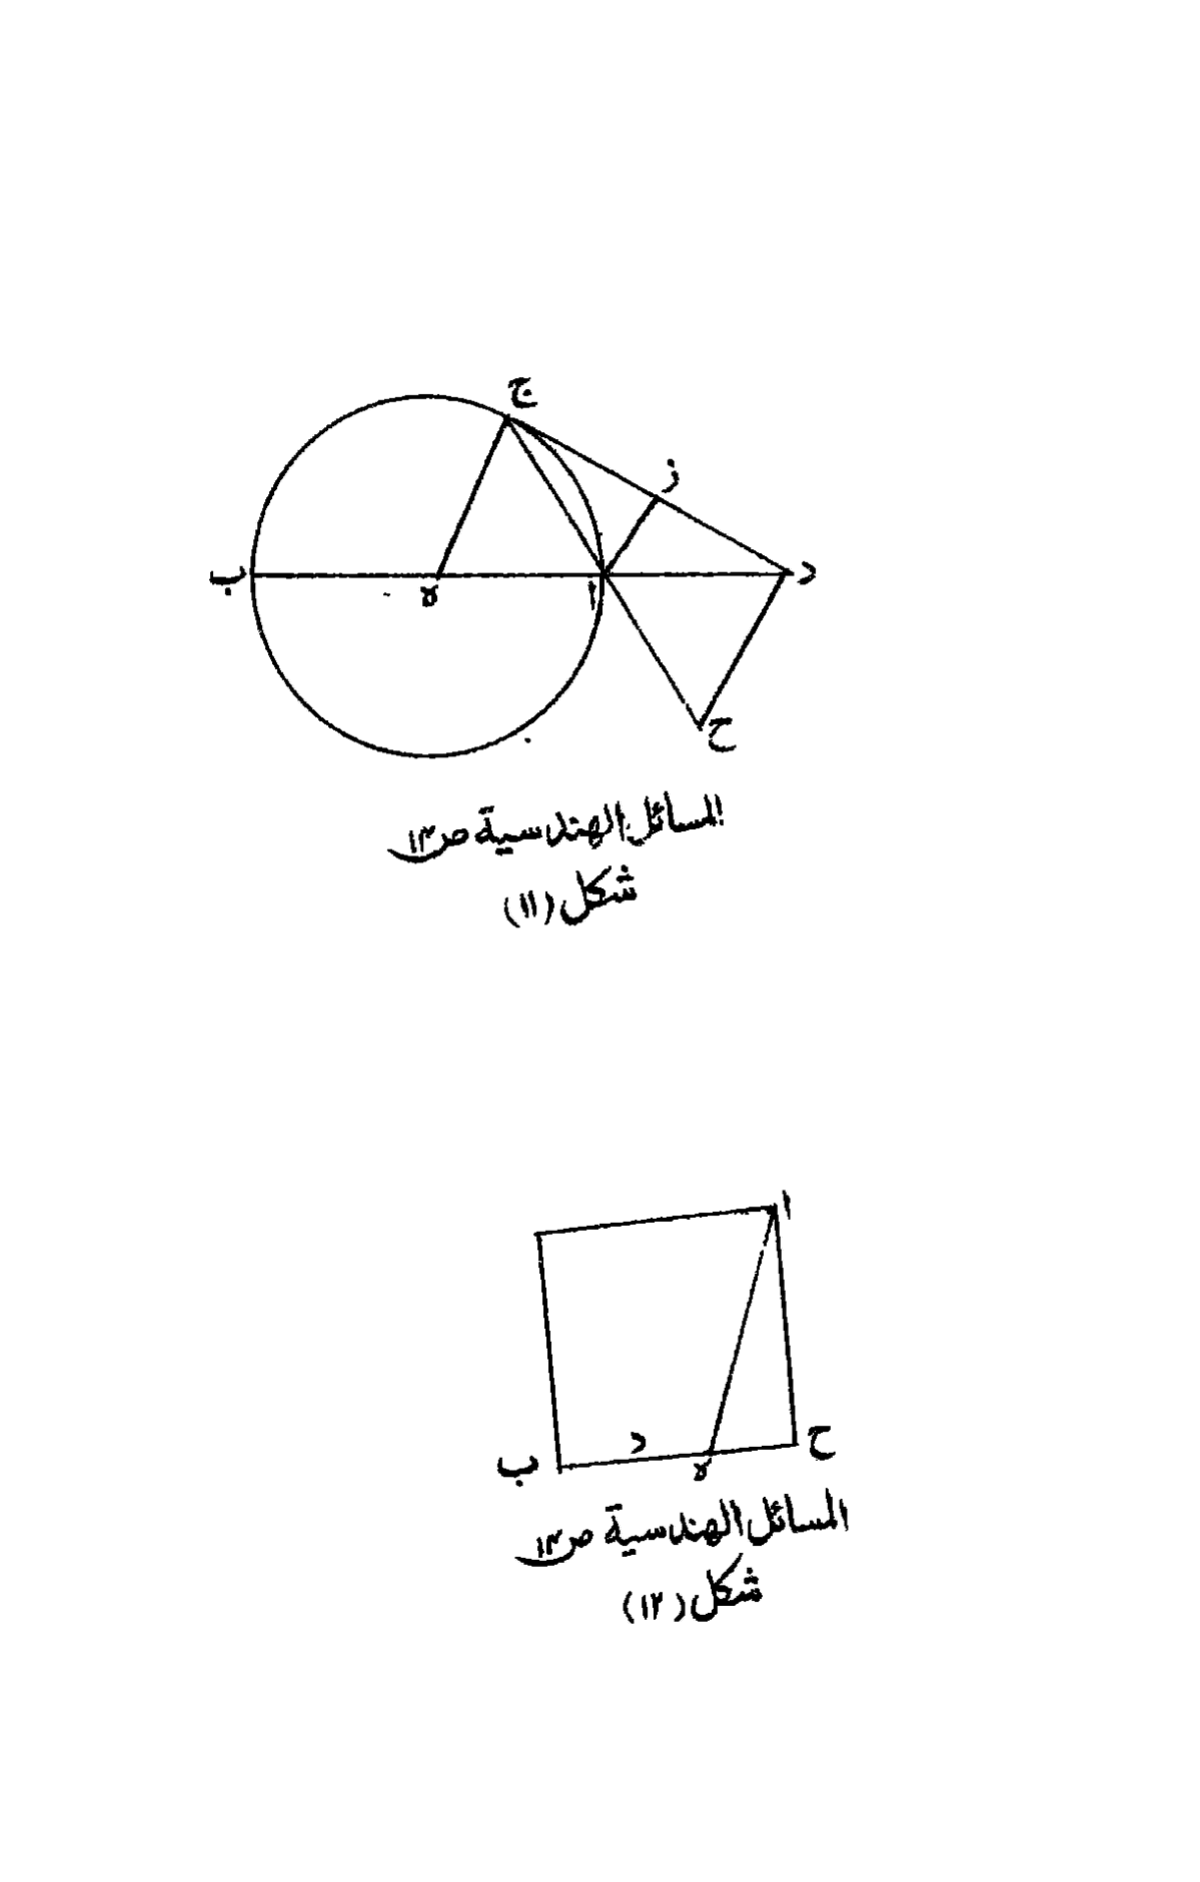 ج
ز
ب
ه
ا
د
ح
المسائل الهندسية ص١٣
شكل (١١)
ا
ب
د
ه
ح
المسائل الهندسية ص١٣
شكل (١٢)